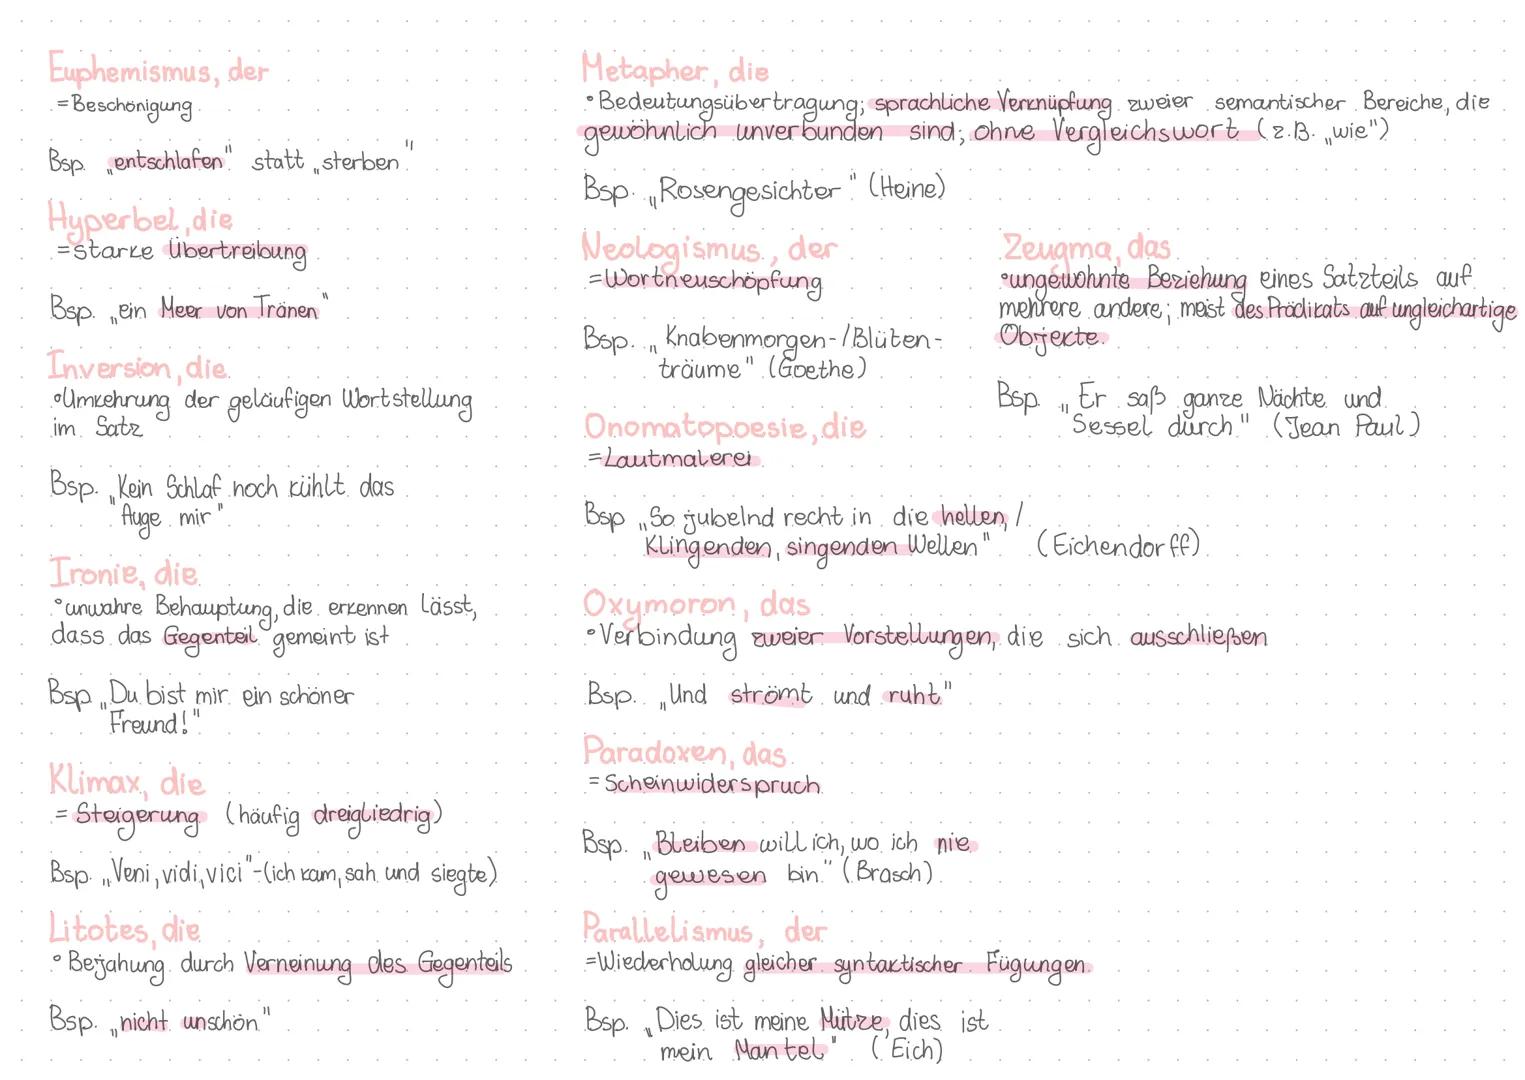 Euphemismus, der
=Beschönigung
Bsp. „entschlafen" statt „sterben"
Hyperbel, die
=starke Übertreibung
Bsp. „ein Meer von Tränen"
Inversion, die
•Umkehrung der geläufigen Wortstellung
im Satz
Bsp. „Kein Schlaf noch kühlt das
Auge mir"
Ironie, die
•unwahre Behauptung, die erkennen lässt,
dass das Gegenteil gemeint ist
Bsp „Du bist mir ein schöner
Freund!"
Klimax, die
= Steigerung (häufig dreigliedrig)
Bsp. „Veni, vidi, vici"-(ich kam, sah und siegte)
Litotes, die
• Bejahung durch Verneinung des Gegenteils
Bsp. „nicht unschön"
Metapher, die
•Bedeutungsübertragung; sprachliche Verknüpfung zweier semantischer Bereiche, die
gewöhnlich unverbunden sind; ohne Vergleichswort (z.B. „wie")
Bsp. „Rosengesichter" (Heine)
Neologismus, der
=Wortneuschöpfung
Bsp. „Knabenmorgen-/Blüten-
träume" (Goethe)
Onomatopoesie, die
=Lautmalerei
Bsp „So jubelnd recht in die hellen, /
Klingenden, singenden Wellen" (Eichendorff)
Oxymoron, das
•Verbindung zweier Vorstellungen, die sich ausschließen
Bsp. „Und strömt und ruht"
Paradoxen, das
=Scheinwiderspruch
Bsp. „Bleiben will ich, wo ich nie
gewesen bin." (Brasch)
Parallelismus, der
=Wiederholung gleicher syntaktischer Fügungen.
Bsp. „Dies ist meine Mütze, dies ist
mein Mantel" (Eich)
Zeugma, das
•ungewohnte Beziehung eines Satzteils auf
mehrere andere; meist des Prädikats auf ungleichartige
Objekte.
Bsp. „Er saß ganze Nächte und
Sessel durch" (Jean Paul)